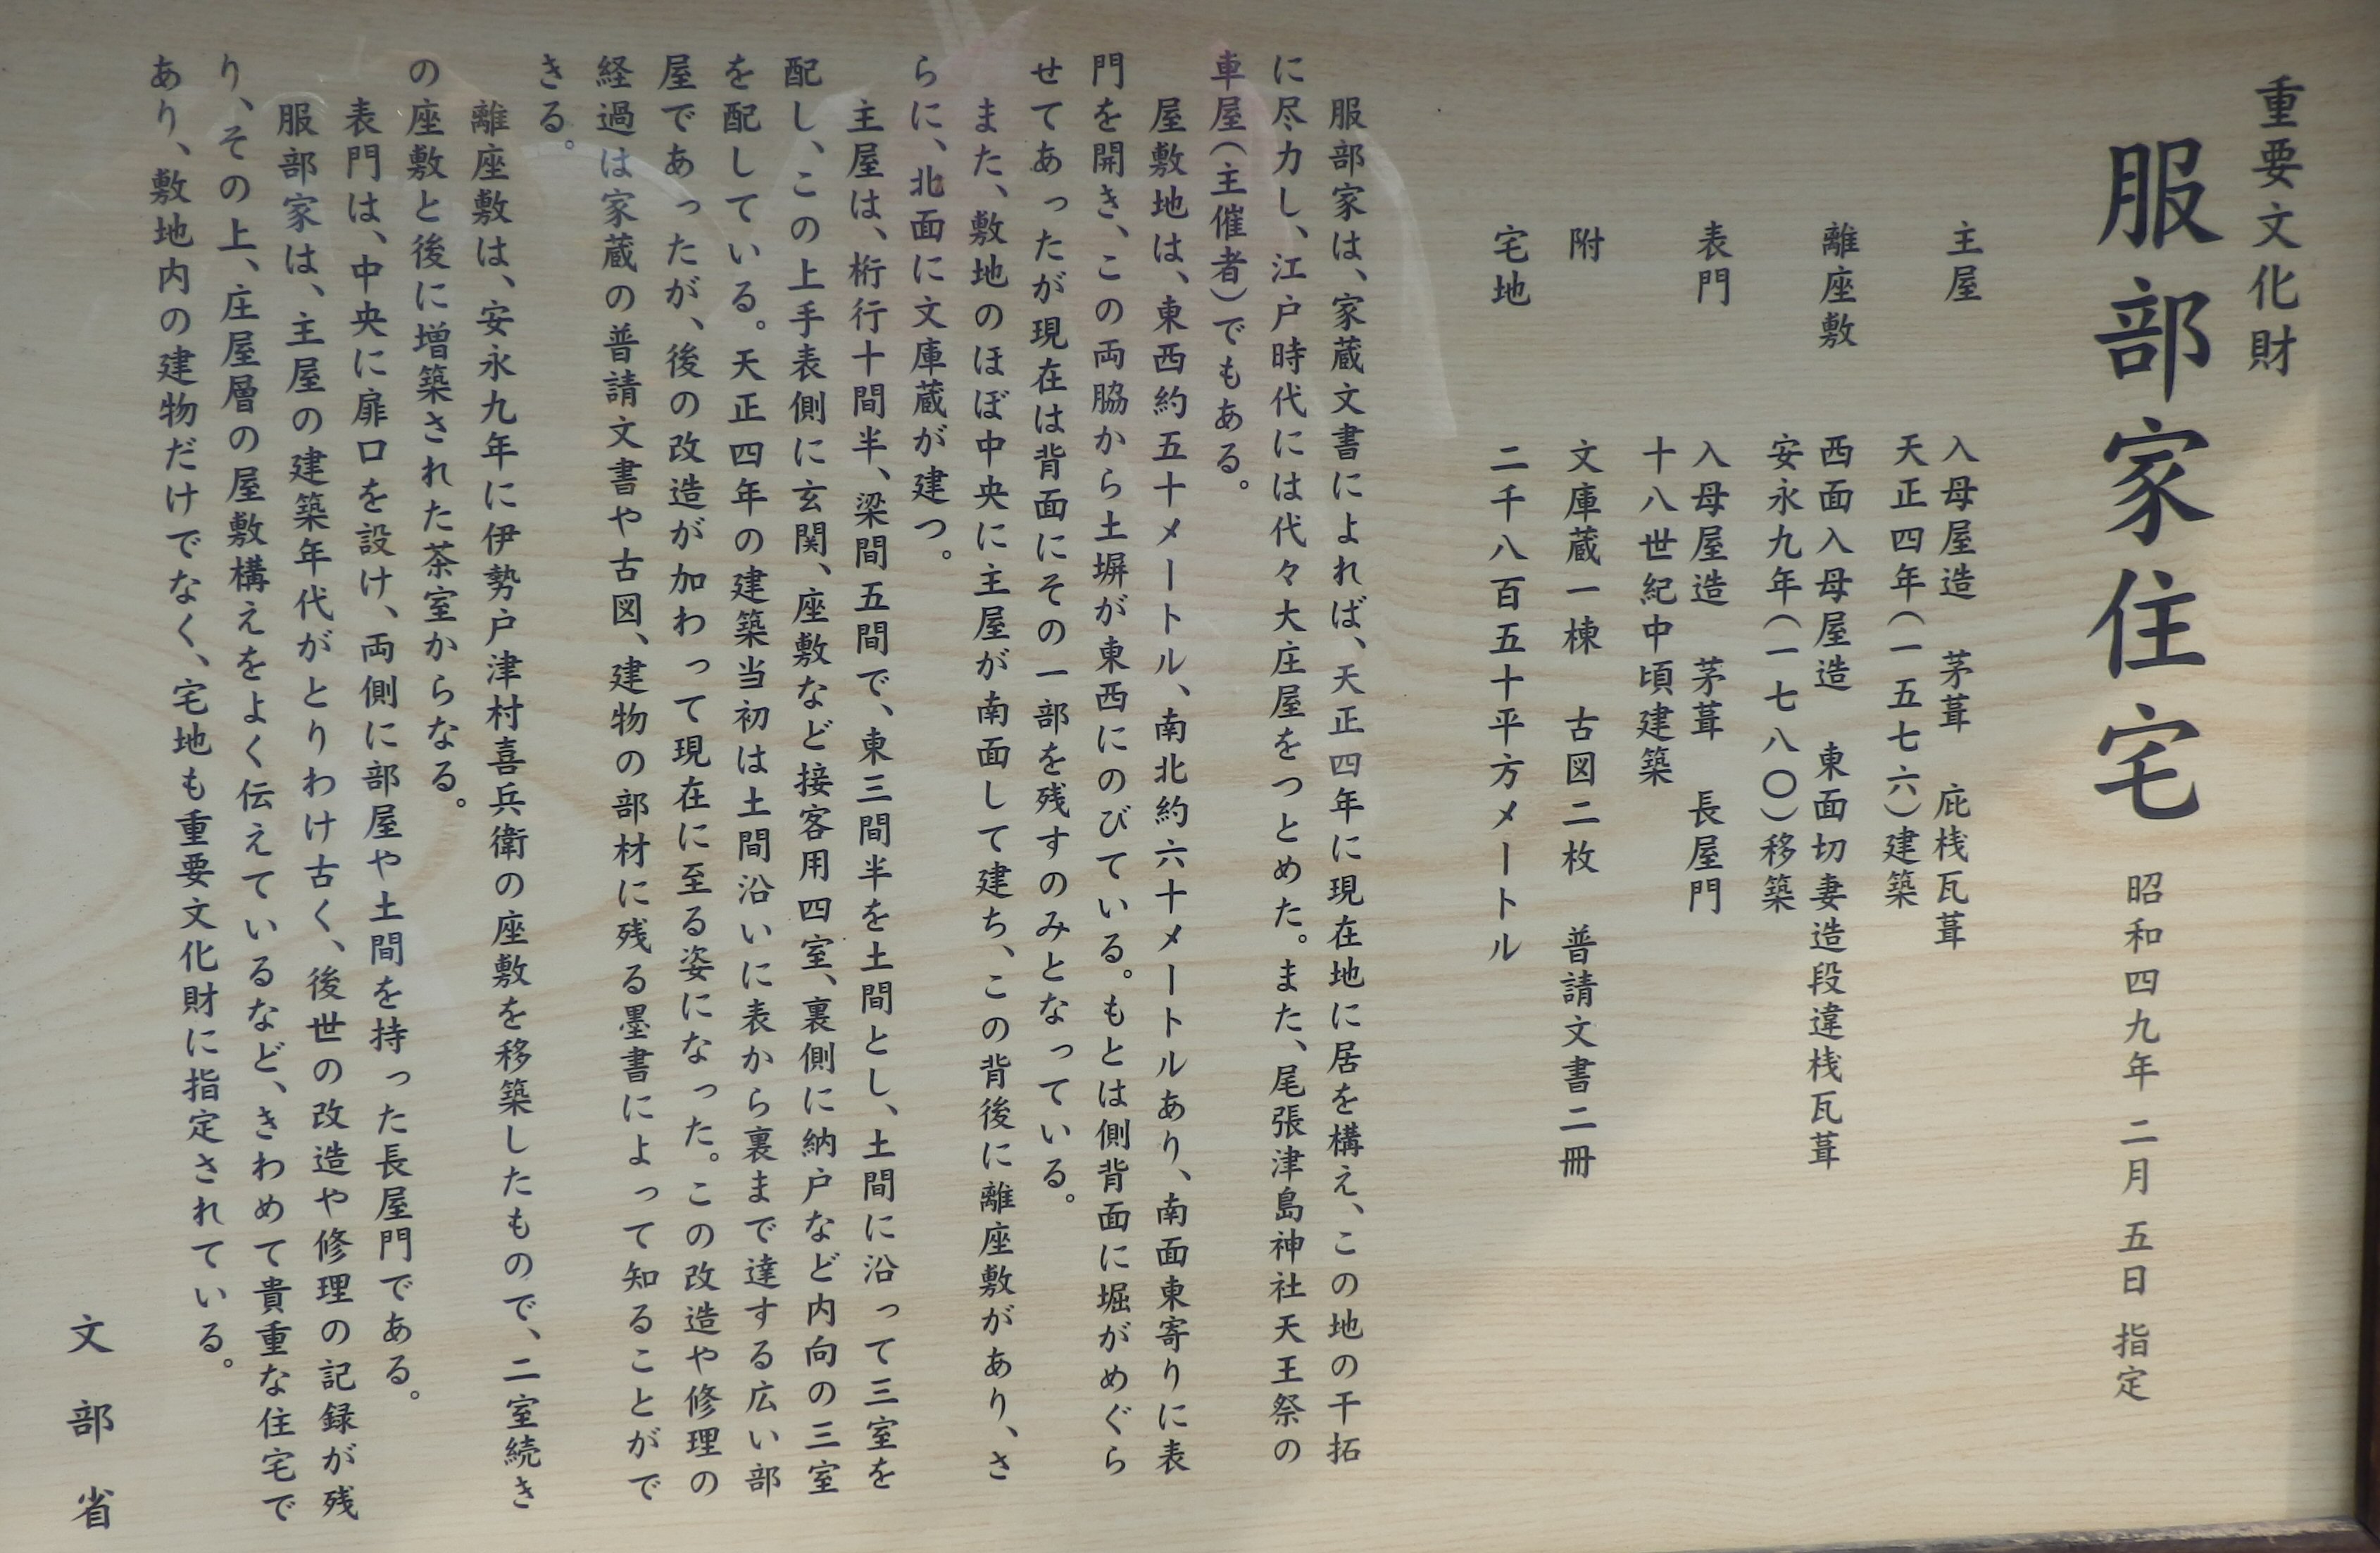 重要文化財
服部家住宅 昭和四九年 二月 五日 指定
主屋 入母屋造 茅葺 庇桟瓦葺
天正四年(一五七六)建築
離座敷 西面入母屋造 東面切妻造段違桟瓦葺
安永九年(一七八〇)移築
表門 入母屋造 茅葺 長屋門
十八世紀中頃建築
附 文庫蔵一棟 古図二枚 普請文書二冊
宅地 二千八百五十平方メートル
服部家は、家蔵文書によれば、天正四年に現在地に居を構え、この地の干拓
に尽力し、江戸時代には代々大庄屋をつとめた。また、尾張津島神社天王祭の
車屋(主催者)でもある。
屋敷地は、東西約五十メートル、南北約六十メートルあり、南面東寄りに表
門を開き、この両脇から土塀が東西にのびている。もとは側背面に堀がめぐら
せてあったが現在は背面にその一部を残すのみとなっている。
また、敷地のほぼ中央に主屋が南面して建ち、この背後に離座敷があり、さ
らに、北面に文庫蔵が建つ。
主屋は、桁行十間半、梁間五間で、東三間半を土間とし、土間に沿って三室を
配し、この上手表側に玄関、座敷など接客用四室、裏側に納戸など内向の三室
を配している。天正四年の建築当初は土間沿いに表から裏まで達する広い部
屋であったが、後の改造が加わって現在に至る姿になった。この改造や修理の
経過は家蔵の普請文書や古図、建物の部材に残る墨書によって知ることがで
きる。
離座敷は、安永九年に伊勢戸津村喜兵衛の座敷を移築したもので、二室続き
の座敷と後に増築された茶室からなる。
表門は、中央に扉口を設け、両側に部屋や土間を持った長屋門である。
服部家は、主屋の建築年代がとりわけ古く、後世の改造や修理の記録が残
り、その上、庄屋層の屋敷構えをよく伝えているなど、きわめて貴重な住宅で
あり、敷地内の建物だけでなく、宅地も重要文化財に指定されている。
文部省